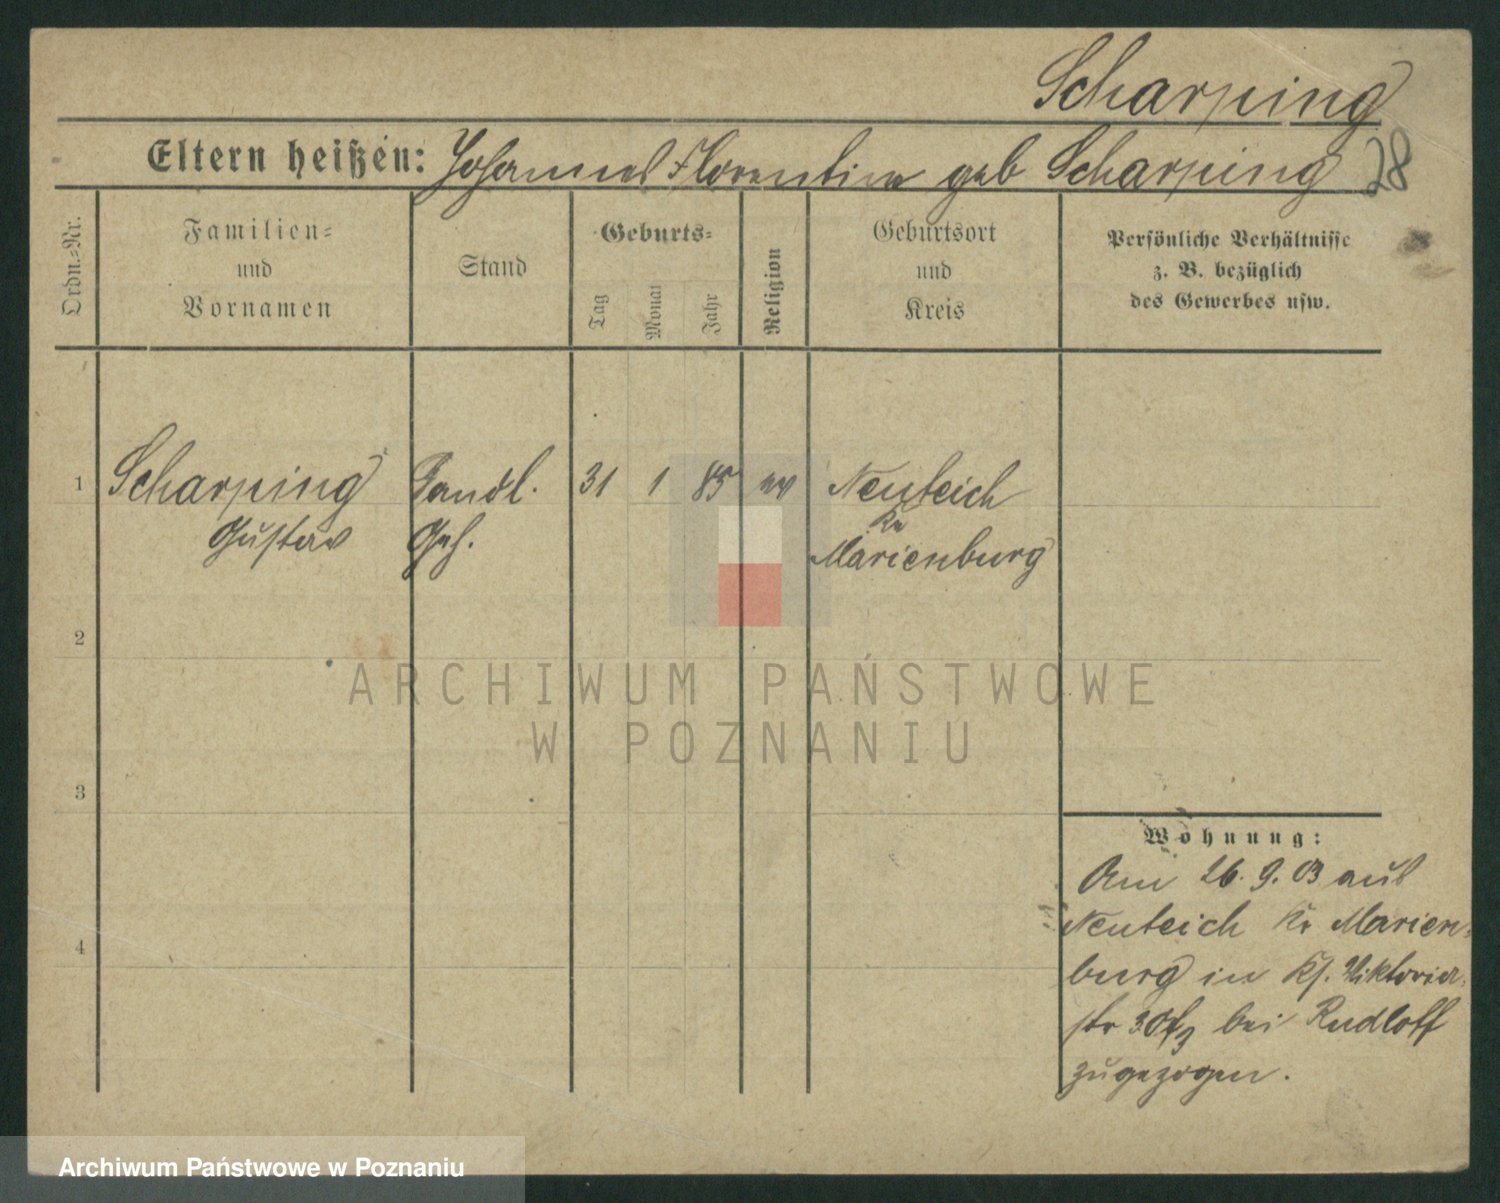 Scharping
Eltern heißen: Johannes Florentine geb Scharping 28
Ordn.=Nr.
Familien=
und
Vornamen
Stand
Geburts=
Tag
Monat
Jahr
Religion
Geburtsort
und
Kreis
Persönliche Verhältnisse
z. B. bezüglich
des Gewerbes usw.
1 Scharping Handl. 31 1 85 ev Neuteich
Gustav Geh. Kr
Marienburg
2
ARCHIWUM PAŃSTWOWE
W POZNANIU
3
Wohnung:
Am 26.9.03 aus
Neuteich Kr Marien=
4
burg in Viktoria=
str 30 bei Rudloff
zugezogen.
Archiwum Państwowe w Poznaniu